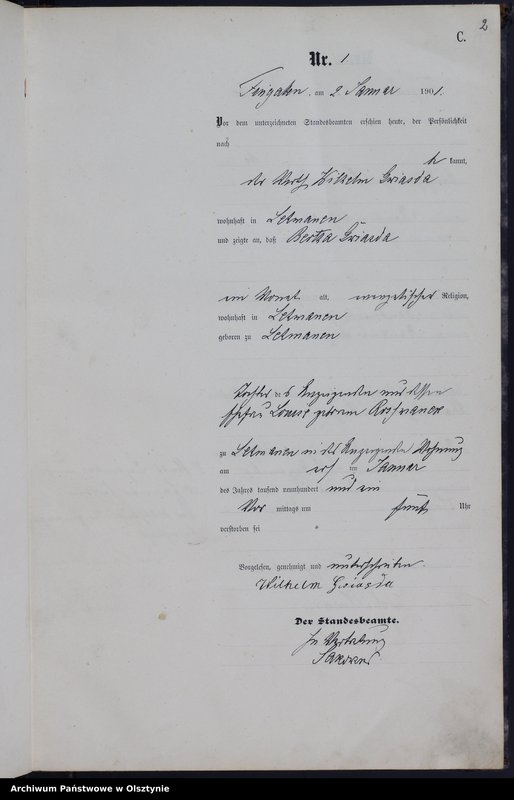 2
C.
Nr. 1
am 2 Januar 1901.
Vor dem unterzeichneten Standesbeamten erschien heute, der Persönlichkeit
nach
kannt,
der Wirth Wilhelm Gwiasda
wohnhaft in Lehmanen
und zeigte an, daß Bertha Gwiasda
ein Monat alt, evangelischer Religion,
wohnhaft in Lehmanen
geboren zu Lehmanen
Tochter des Anzeigenden und dessen
Ehefrau Louise geborne
zu Lehmanen in des Anzeigenden Wohnung
am ersten Januar
des Jahres tausend neunhundert und ein
Vor mittags um fünf Uhr
verstorben sei
Vorgelesen, genehmigt und unterschrieben.
Wilhelm Gwiasda
Der Standesbeamte.
In Vertretung
Archiwum Państwowe w Olsztynie